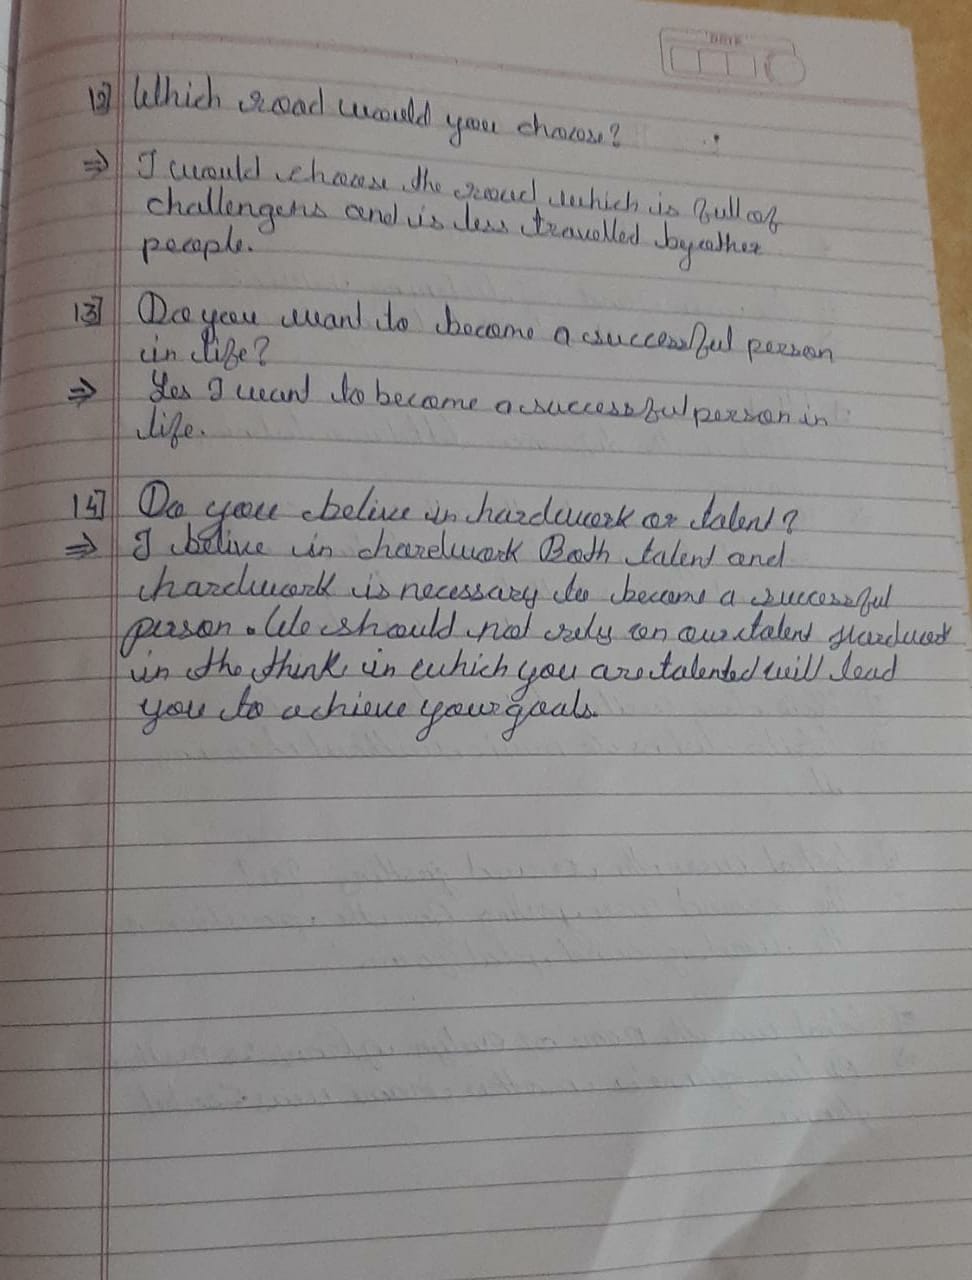 DATE
12] Which road would you choose?
⇒ I would choose the road which is full of
challengers and is less travelled by other
people.
13] Do you want to become a successful person
in life?
⇒ Yes I want to become a successful person in
life.
14] Do you belive in hardwork or talent?
⇒ I belive in hardwork Both talent and
hardwork is necessary to become a successful
person. We should not rely on our talent Hardwork
in the think in which you are talented will lead
you to achieve your goals.